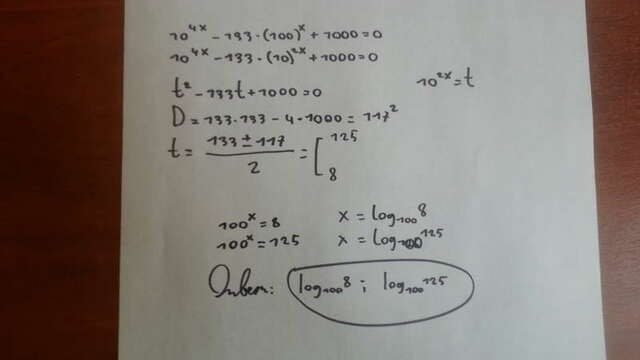 10^{4x} - 133 · (100)^x + 1000 = 0
10^{4x} - 133 · (10)^{2x} + 1000 = 0
t² - 133t + 1000 = 0    10^{2x} = t
D = 133·133 - 4·1000 = 117²
t = (133 ± 117)/2 = [125 8
100^x = 8    x = log_{100} 8
100^x = 125    x = log_{100} 125
Ответ: log_{100} 8 ; log_{100} 125